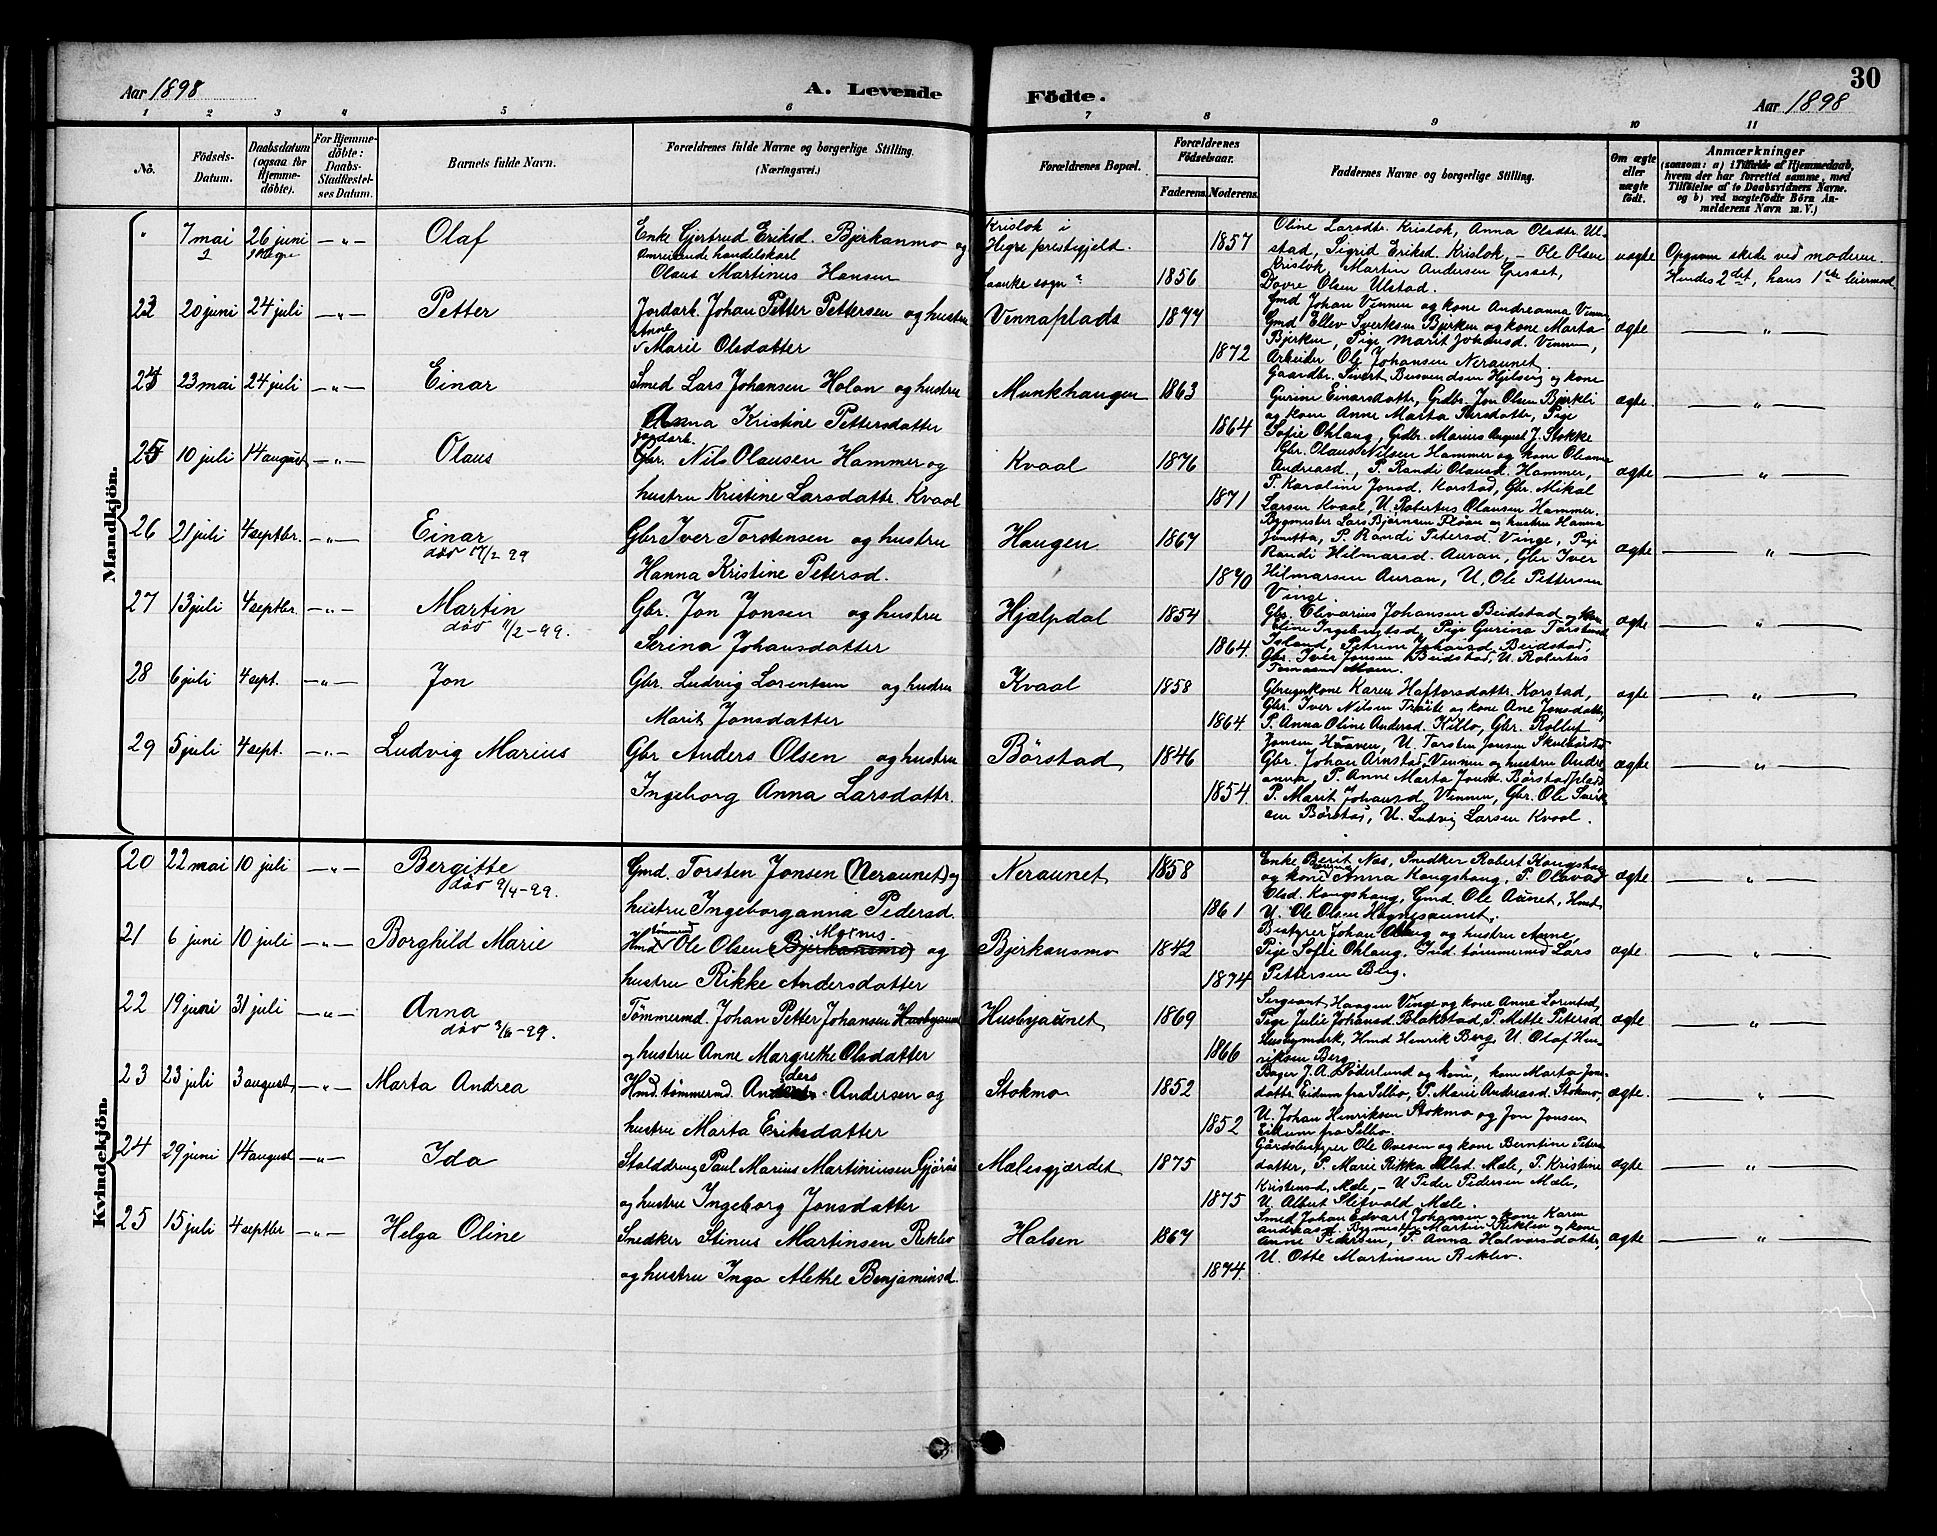 30
Aar 1898
A. Levende Födte.
Aar 1898
1 2 3 4 5 6 7 8 9 10 11
No.
Födsels-Datum.
Daabsdatum (ogsaa for Hjemme-döbte).
For Hjemme-döbte: Daabs-Stadfæstel-ses Datum.
Barnets fulde Navn.
Forældrenes fulde Navne og borgerlige Stilling.
(Næringsvei.)
Forældrenes Bopæl.
Forældrenes Födselsaar.
Faderens. Moderens.
Faddernes Navne og borgerlige Stilling.
Om ægte eller uægte födt.
Anmærkninger
(saasom: a) i Tilfælde af Hjemmedaab,
hvem der har forrettet samme, med
Tilföielse af to Daabsvidners Navne.
og b) ved uægtefödte Börn An-
melderens Navn m. V.)
Mandkjön.
" 7 mai 26 juni — " — Olaf
Enke Gjertrud Eriksd. Bjerkanmo og
omreisende handelskarl
Olaus Martinus Hansen
Krislok i
Hegre prestegjeld.
Laanke sogn
1857
1856
Oline Larsdtr. Krislok, Anna Olsdtr. Ul-
stad, Sigrid Eriksd. Krislok, – Ole Olsen
Krislok, Martin Andersen Gresset,
Dovre Olsen Ulstad.
uægte
Opgaven skede ved moderen.
Hendes 2det, hans 1ste leiermaal
23 20 juni 24 juli — " — Petter
Jordarb. Johan Petter Pettersen og hustru
Anne
Marie Olsdatter
Vennaplads
1877
1872
Gmd Johan Vennen og kone Andreanna Venn
Gmd Ellev Sverksen Bjerken og kone Marta
Bjerken, Pige Marit Johansd. Vennen,
Arbeider Ole Johansen Neraunet.
ægte — " —
24 23 mai 24 juli — " — Einar
Smed Lars Johansen Holan og hustru
Anna Kristine Pettersdatter
Munkhaugen
1863
1864
Gaardbr. Sivert Hjelseng og kone
Gurine Einarsdattr, Grdbr. Jon Olsen Bjerkli
og kone Anne Marta Persdatter, Pige
Sofie Ohlaug, Grdbr. Marius August J. Stokke
ægte. — " —
25 10 juli 14 august — " — Olaus
jordarb.
Gbr. Nils Olausen Hammer og
hustru Kristine Larsdattr. Kvaal
Kvaal
1876
1871
Gbr. Olaus Nilsen Hammer og kone Oleanna
Andreasd., P. Randi Olausd. Hammer,
P. Karoline Jonsd. Korstad, Gbr. Mikal
Larsen Kvaal, U. Robertus Olausen Hammer.
ægte — " —
26 21 juli 4 septbr. — " — Einar
död 17/2 99
Gbr Iver Torstensen og hustru
Hanna Kristine Petersd.
Haugen
1867
1870
Bygmester Lars Bjørnsen Fløan og hustru Hanna
P. Randi Petersd. Vinge, Pige
Randi Hilmarsd. Auran, Gbr Iver
Hilmarsen Auran, U. Ole Pettersen
Vinge.
ægte — " —
27 13 juli 4 septbr. — " — Martin
död 11/2-99.
Gbr. Jon Jonsen og hustru
Serina Johansdatter
Hjælpdal
1854
1864.
Gbr. Olivarius Johansen Beidstad og kone
Eline Ingebrigtsd, Pige Gurina Torstensd
Petrine Johansd. Beidstad,
Gbr. Iver Jonsen Beidstad, U. Robertus
ægte — " —
28 6 juli 4 sept. — " — Jon
Gbr. Ludvig Lorentsen og hustru
Marit Jonsdatter
Kvaal
1858
1864.
Gbrugerkone Karen Haftorsdattr. Korstad,
Gbr. Iver Nilsen og kone Ane Jonsdatter,
P. Anna Oline Andersd. Killo, Gbr. Rolluf
Jonsen Haaven, U. Torsten Jonsen
ægte — " —
29 5 juli 4 sept. — " — Ludvig Marius
Gbr Anders Olsen og hustru
Ingeborg Anna Larsdattr.
Börstad
1846
1854.
Gbr. Johan Arnstad Vennen og hustru Andre-
anna, P. Anne Marta Jonsd. Börstadplads
P. Marit Johansd Vennen, Gbr. Ole Sverk
sen Börstad, U. Ludvig Larsen Kvaal.
ægte — " —
Kvindekjön.
20 22 mai 10 juli — " — Bergitte
död 9/4-99.
Gmd. Torsten Jonsen (Neraunet) og
hustru Ingeborganna Pedersd.
Neraunet
1858
1861
Enke Berit Nas, Snedker Robert Kongshaug
og kone Anna Kongshaug, P. Olava
Olsd. Kongshaug, Gmd. Ole Aunet, Hmd.
U. Ole Olsen Hognesaunet.
ægte — " —
21 6 juni 10 juli — " — Borghild Marie
tömmermd
Hmd Ole Olsen (Bjerkansmo) og
hustru Rikke Andersdatter
Bjerkansmo
1842
1874
Bestyrer Johan Ohlaug og hustru Anne,
Pige Sofie Ohlaug, Ind. tømmermd Lars
Pettersen Berg.
ægte. — " —
22 19 juni 31 juli — " — Anna
död 3/6-99.
Tömmermd. Johan Petter Johansen Husbyaun
og hustru Anne Margrethe Olsdatter
Husbyaunet
1869
1866
Sergeant Haagen Vinge og kone Anne Lorentsd
Pige Julie Johansd. Blakstad, P. Mette Petersd.
Husbymark, Hmd Henrik Berg U. Olaf Hen-
riksen Berg
ægte — " —
23 23 juli 3 august, — " — Marta Andrea
ders
Hmd. tömmermd. An Andersen og
hustru Marta Eriksdatter
Stokmo
1852
1852
Bager J. A. Söderlund og kone, kone Marta Jon-
datter Eidum fra Selbo, P. Marie Andreasd. Stokmo,
U. Johan Henriksen Stokmo og Jon Jonsen
Eidum fra Selbo.
ægte. — " —
24 29 juni 14 august — " — Ida
Stalddreng Paul Marius Martiniusen Gjørås
og hustru Ingeborg Jonsdatter
Mælesgjærdet
1875
1875
Gårdsbestyrer Ole Ovesen og kone Berntine Peters
datter, P. Marie Rikka Olsd. Mæle, P. Kristine
Kristensd. Mæle, – U Peder Pedersen Mæle,
U. Albert Slitvold Mæle.
ægte — " —
25 15 juli 4 septbr — " — Helga Oline
Snedker Stinus Martinsen Reklev
og hustru Inga Alethe Benjaminsd.
Halsen
1867
1874
Smed Johan Edvart Johansen og kone Karen
Andreasd. Bygmester Martin Reklev og kone
Anne Pedersen, P. Anna Halvorsdatter,
U. Otte Martinsen Reklev.
ægte — " —